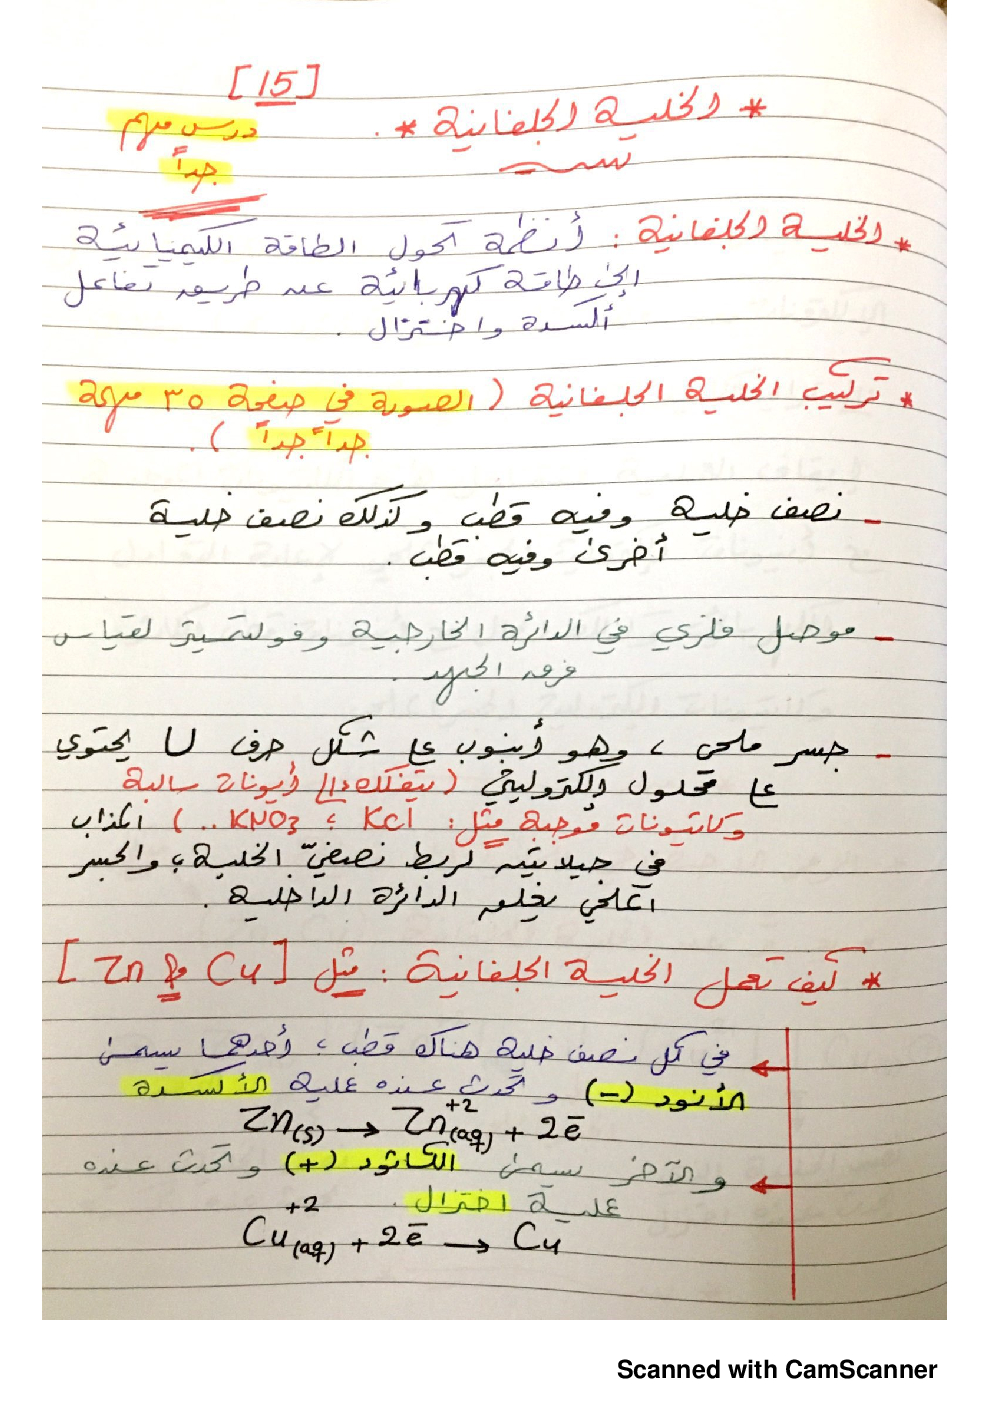 [15]
* الخلية الجلفانية *
درس مهم
جداً
* الخلية الجلفانية : أنظمة تحول الطاقة الكيميائية
إلى طاقة كهربائية عن طريق تفاعل
أكسدة واختزال .
* تركيب الخلية الجلفانية ( الصورة في صفحة ٣٥ مهمة
جداً جداً ) .
- نصف خلية وفيه قطب وكذلك نصف خلية
أخرى وفيه قطب .
- موصل فلزي في الدائرة الخارجية وفولتميتر لقياس
فرق الجهد .
- جسر ملحي ، وهو أنبوب على شكل حرف U يحتوي
على محلول إلكتروليتي ( يتفكك إلى أيونات سالبة
وكاتيونات موجبة مثل : KCl ، KNO3 .. ) المذاب
في جيلاتين لربط نصفيّ الخلية ، والجسر
الملحي يغلق الدائرة الداخلية .
* كيف تعمل الخلية الجلفانية : مثل [ Cu و Zn ]
← في كل نصف خلية هناك قطب ، أحدهما يسمى
الأنود (-) و تحدث عنده عملية الأكسدة
Zn(s) → Zn+2(aq) + 2e-
← والآخر يسمى الكاثود (+) و تحدث عنده
عملية اختزال .
Cu+2(aq) + 2e- → Cu
Scanned with CamScanner